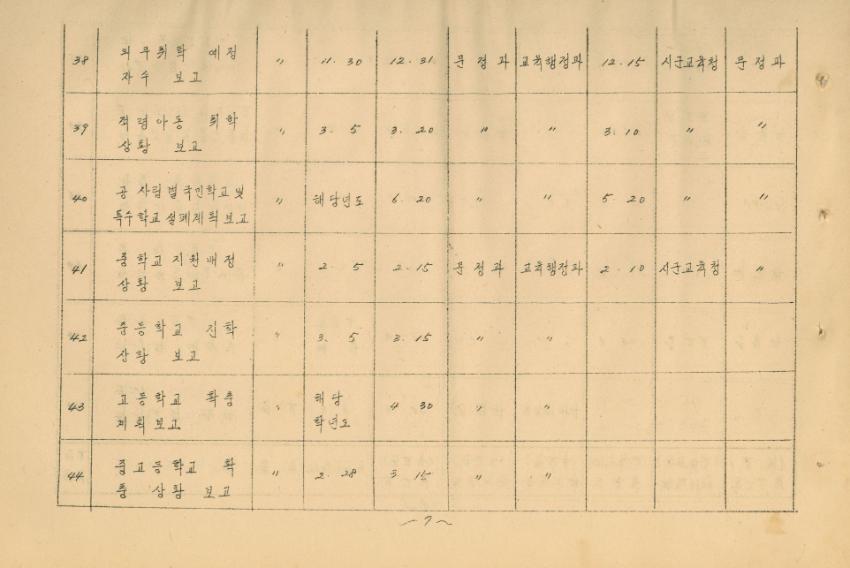 38 의무취학 예정 자수 보고 〃 11. 30 12. 31 문정과 교육행정과 12. 15 시군교육청 문정과
39 적령아동 취학 상황 보고 〃 3. 5 3. 20 〃 〃 3. 10 〃 〃
40 공사립별국민학교및 특수학교설폐계획보고 〃 해당년도 6. 20 〃 〃 5. 20 〃 〃
41 중학교지원배정 상황 보고 〃 2. 5 2. 15 문정과 교육행정과 2. 10 시군교육청 〃
42 중등학교 진학 상황 보고 〃 3. 5 3. 15 〃 〃
43 고등학교 확충 계획보고 〃 해당 학년도 4 30 〃 〃
44 중고등학교 확 충 상황 보고 〃 2. 28 3 15 〃 〃
~7~